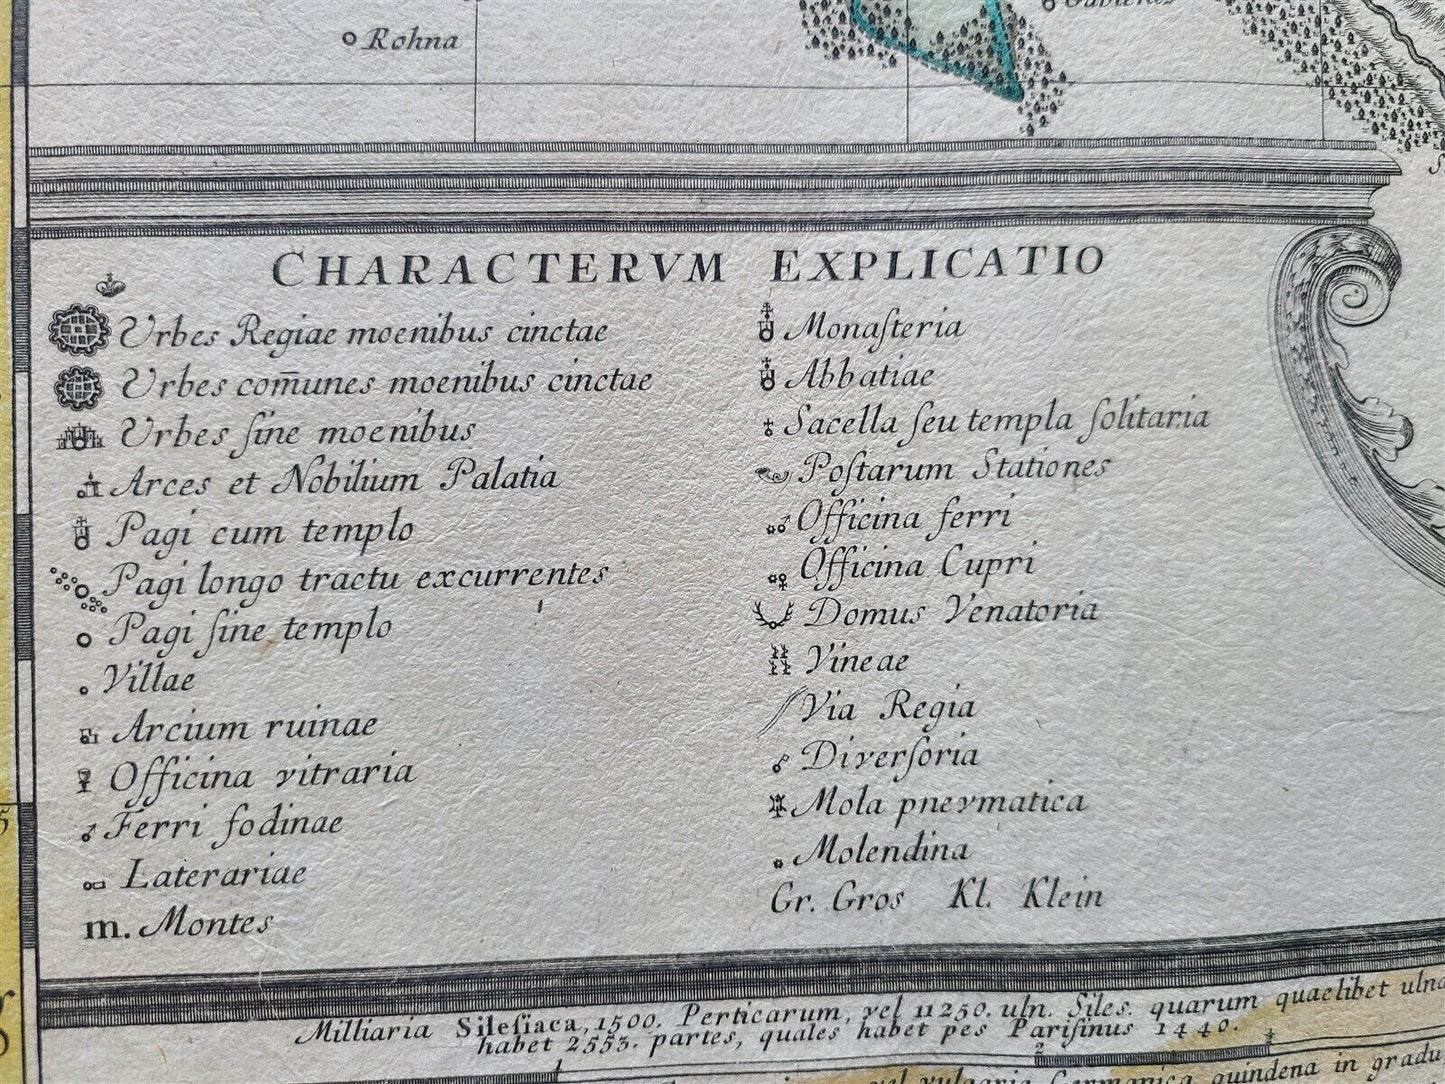 Rohna
CHARACTERVM EXPLICATIO
Urbes Regiae moenibus cinctae
Urbes com̄unes moenibus cinctae
Urbes ſine moenibus
Arces et Nobilium Palatia
Pagi cum templo
Pagi longo tractu excurrentes
Pagi ſine templo
Villae
Arcium ruinae
Officina vitraria
Ferri fodinae
Laterariae
m. Montes
Monaſteria
Abbatiae
Sacella ſeu templa ſolitaria
Poſtarum Stationes
Officina ferri
Officina Cupri
Domus Venatoria
Vineae
Via Regia
Diverſoria
Mola pnevmatica
Molendina
Gr. Gros Kl. Klein
Milliaria Sileſiaca, 1500. Perticarum, vel 11250. uln. Siles. quarum quaelibet ulna
habet 2553. partes, quales habet pes Pariſinus 1440.
1 2
vel vulgaria Germanica quindena in gradu
5